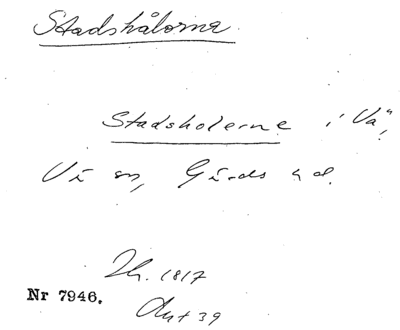 Stadshålorna.
Stadsholerne i "Vä",
Vä sn, Gärds hd.
Lh. 1817
Nr 7946.
Akt 39